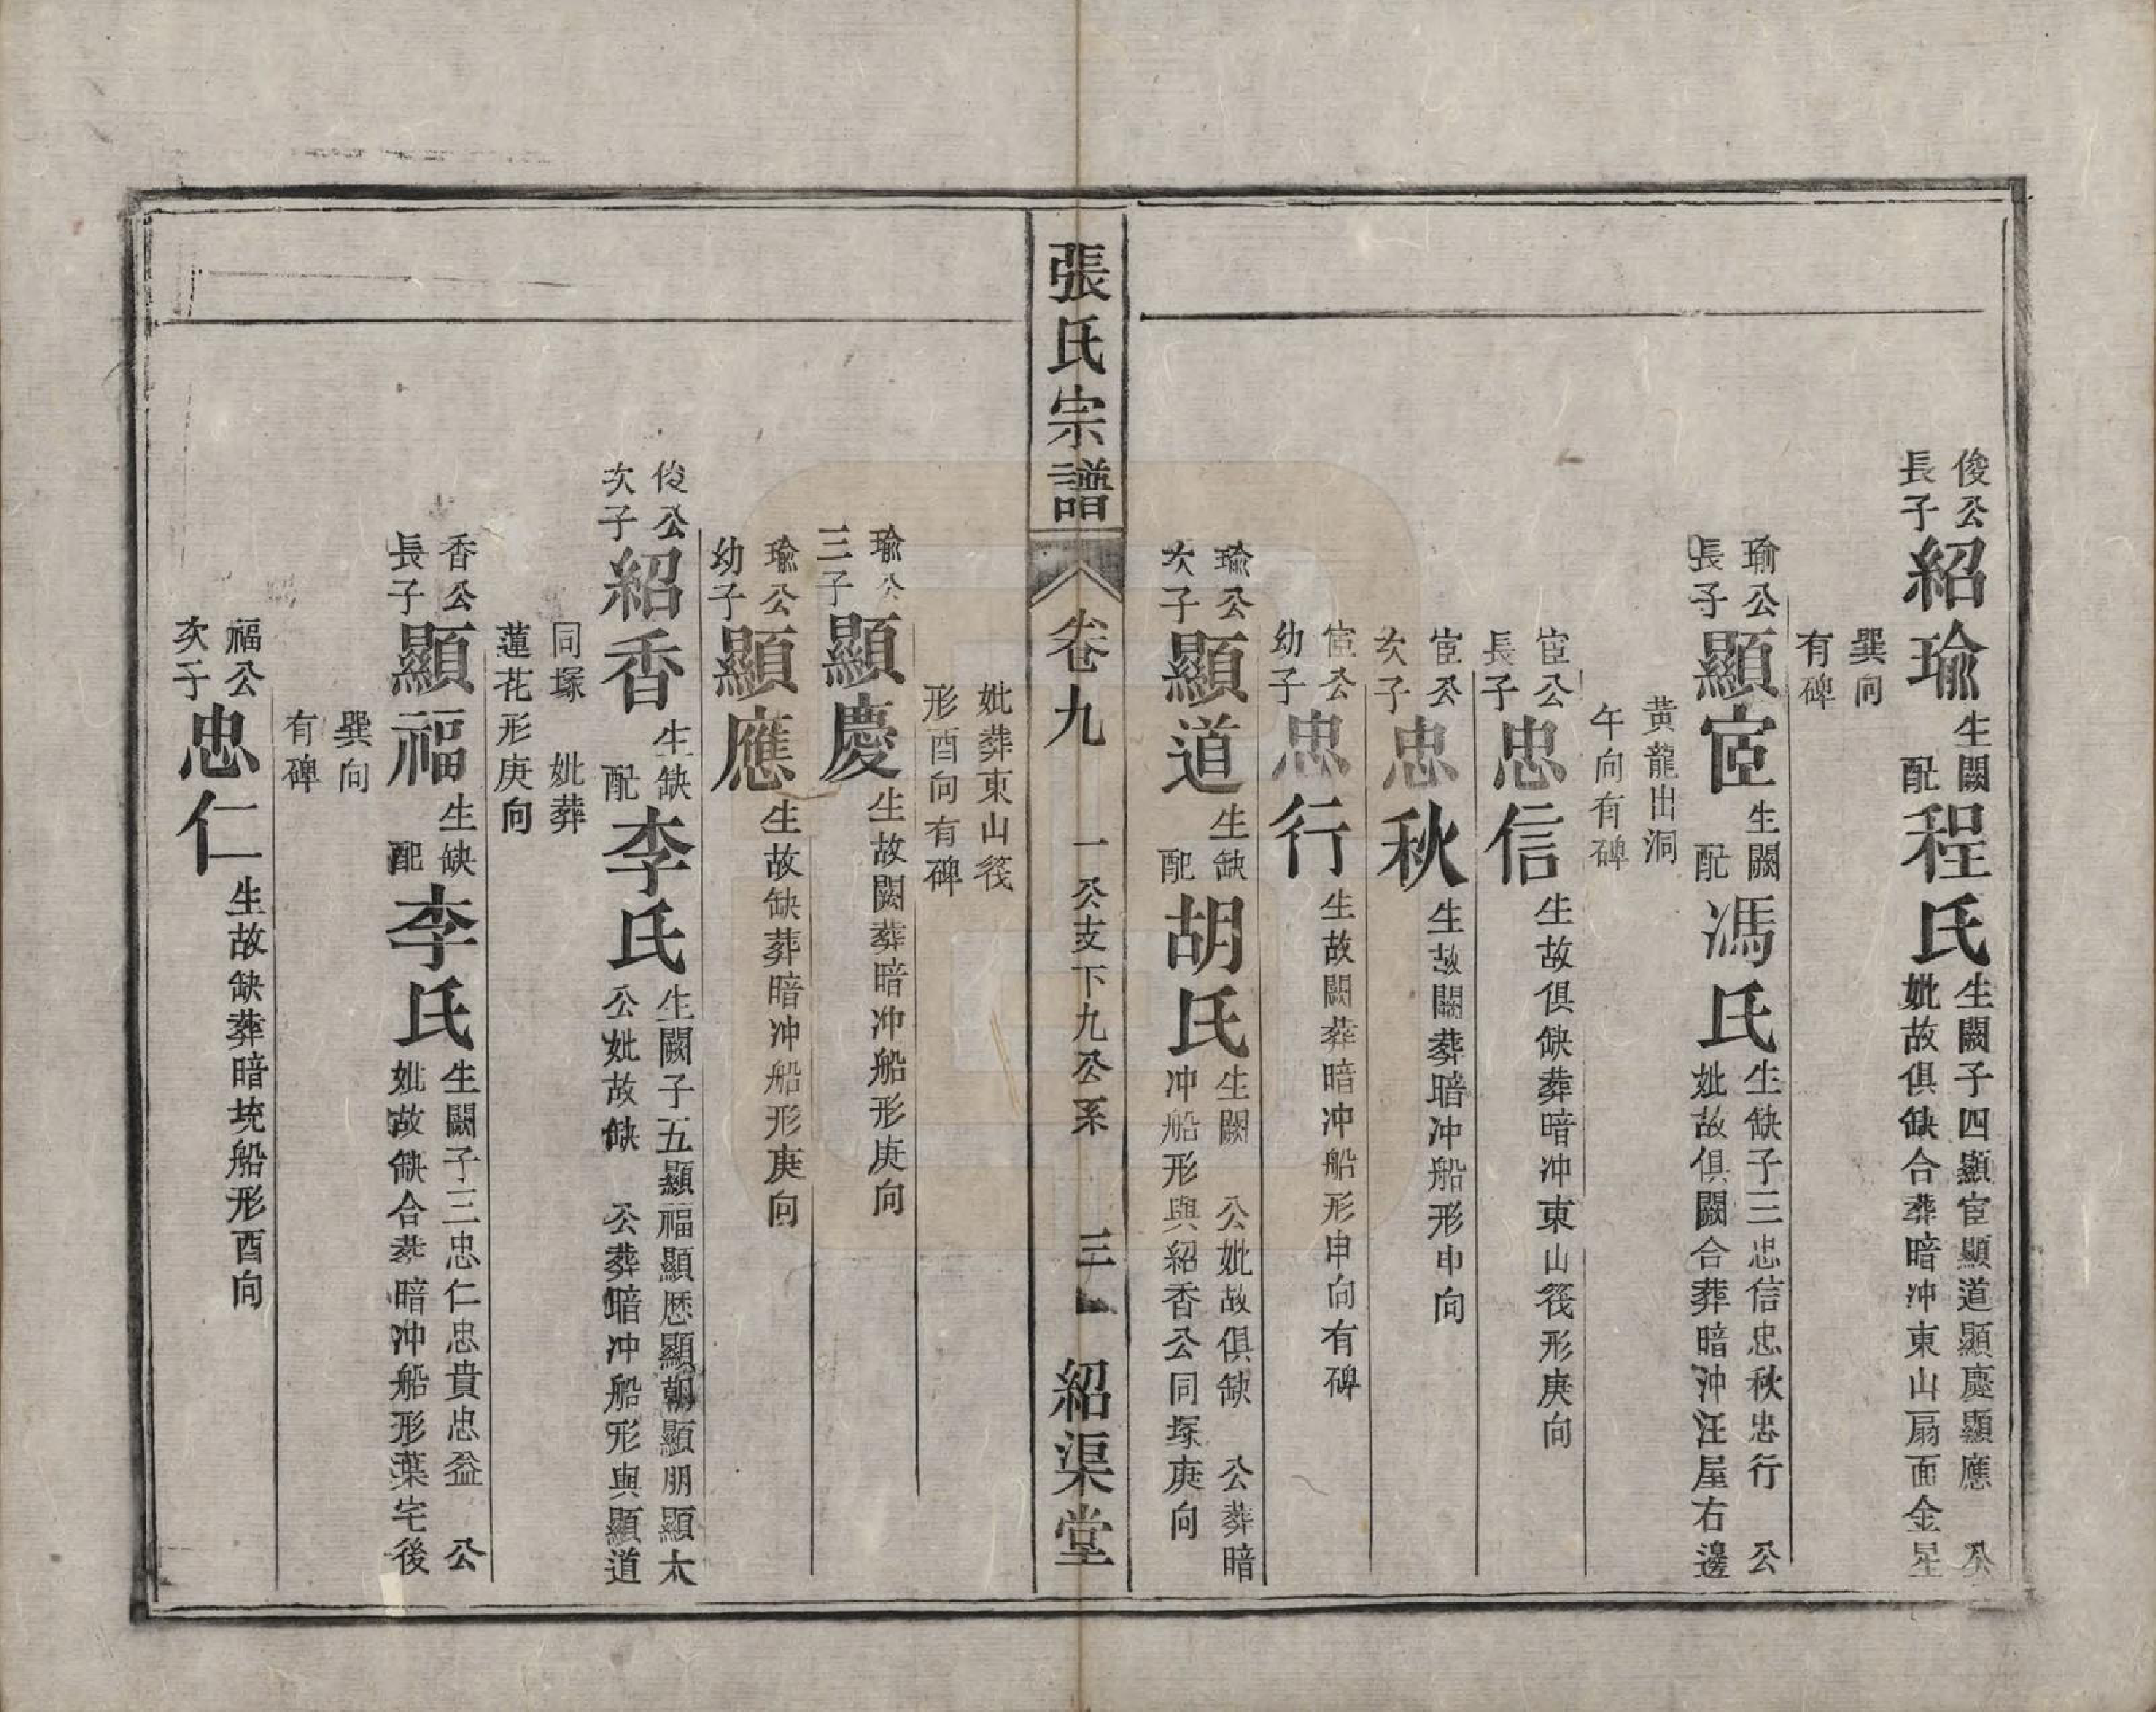 俊公長子紹瑜生闕配程氏生闕子四顯宦顯道顯慶顯應 公妣故俱缺合葬暗冲東山扇面金星
巽向有碑
瑜公長子顯宦生闕配馮氏生缺子三忠信忠秋忠行 公妣故俱闕合葬暗沖汪屋右邊
黄龍出洞午向有碑
宦公長子忠信生故俱缺葬暗冲東山筏形庚向
宦公次子忠秋生故闕葬暗冲船形申向
宦公幼子忠行生故闕葬暗冲船形申向有碑
瑜公次子顯道生缺配胡氏生闕 公妣故俱缺 公葬暗冲船形與紹香公同塚庚向
張氏宗譜
卷九 一公支下九公系 三 紹渠堂
妣葬東山筏形酉向有碑
瑜公三子顯慶生故闕葬暗冲船形庚向
瑜公幼子顯應生故缺葬暗冲船形庚向
俊公次子紹香生缺配李氏生闕子五顯福顯歷顯朝顯朋顯太公妣故缺 公葬暗冲船形與顯道
同塚 妣葬蓮花形庚向
香公長子顯福生缺配李氏生闕子三忠仁忠貴忠益 公妣故缺合葬暗冲船形葉宅後
巽向有碑
福公次子忠仁生故缺葬暗垅船形酉向